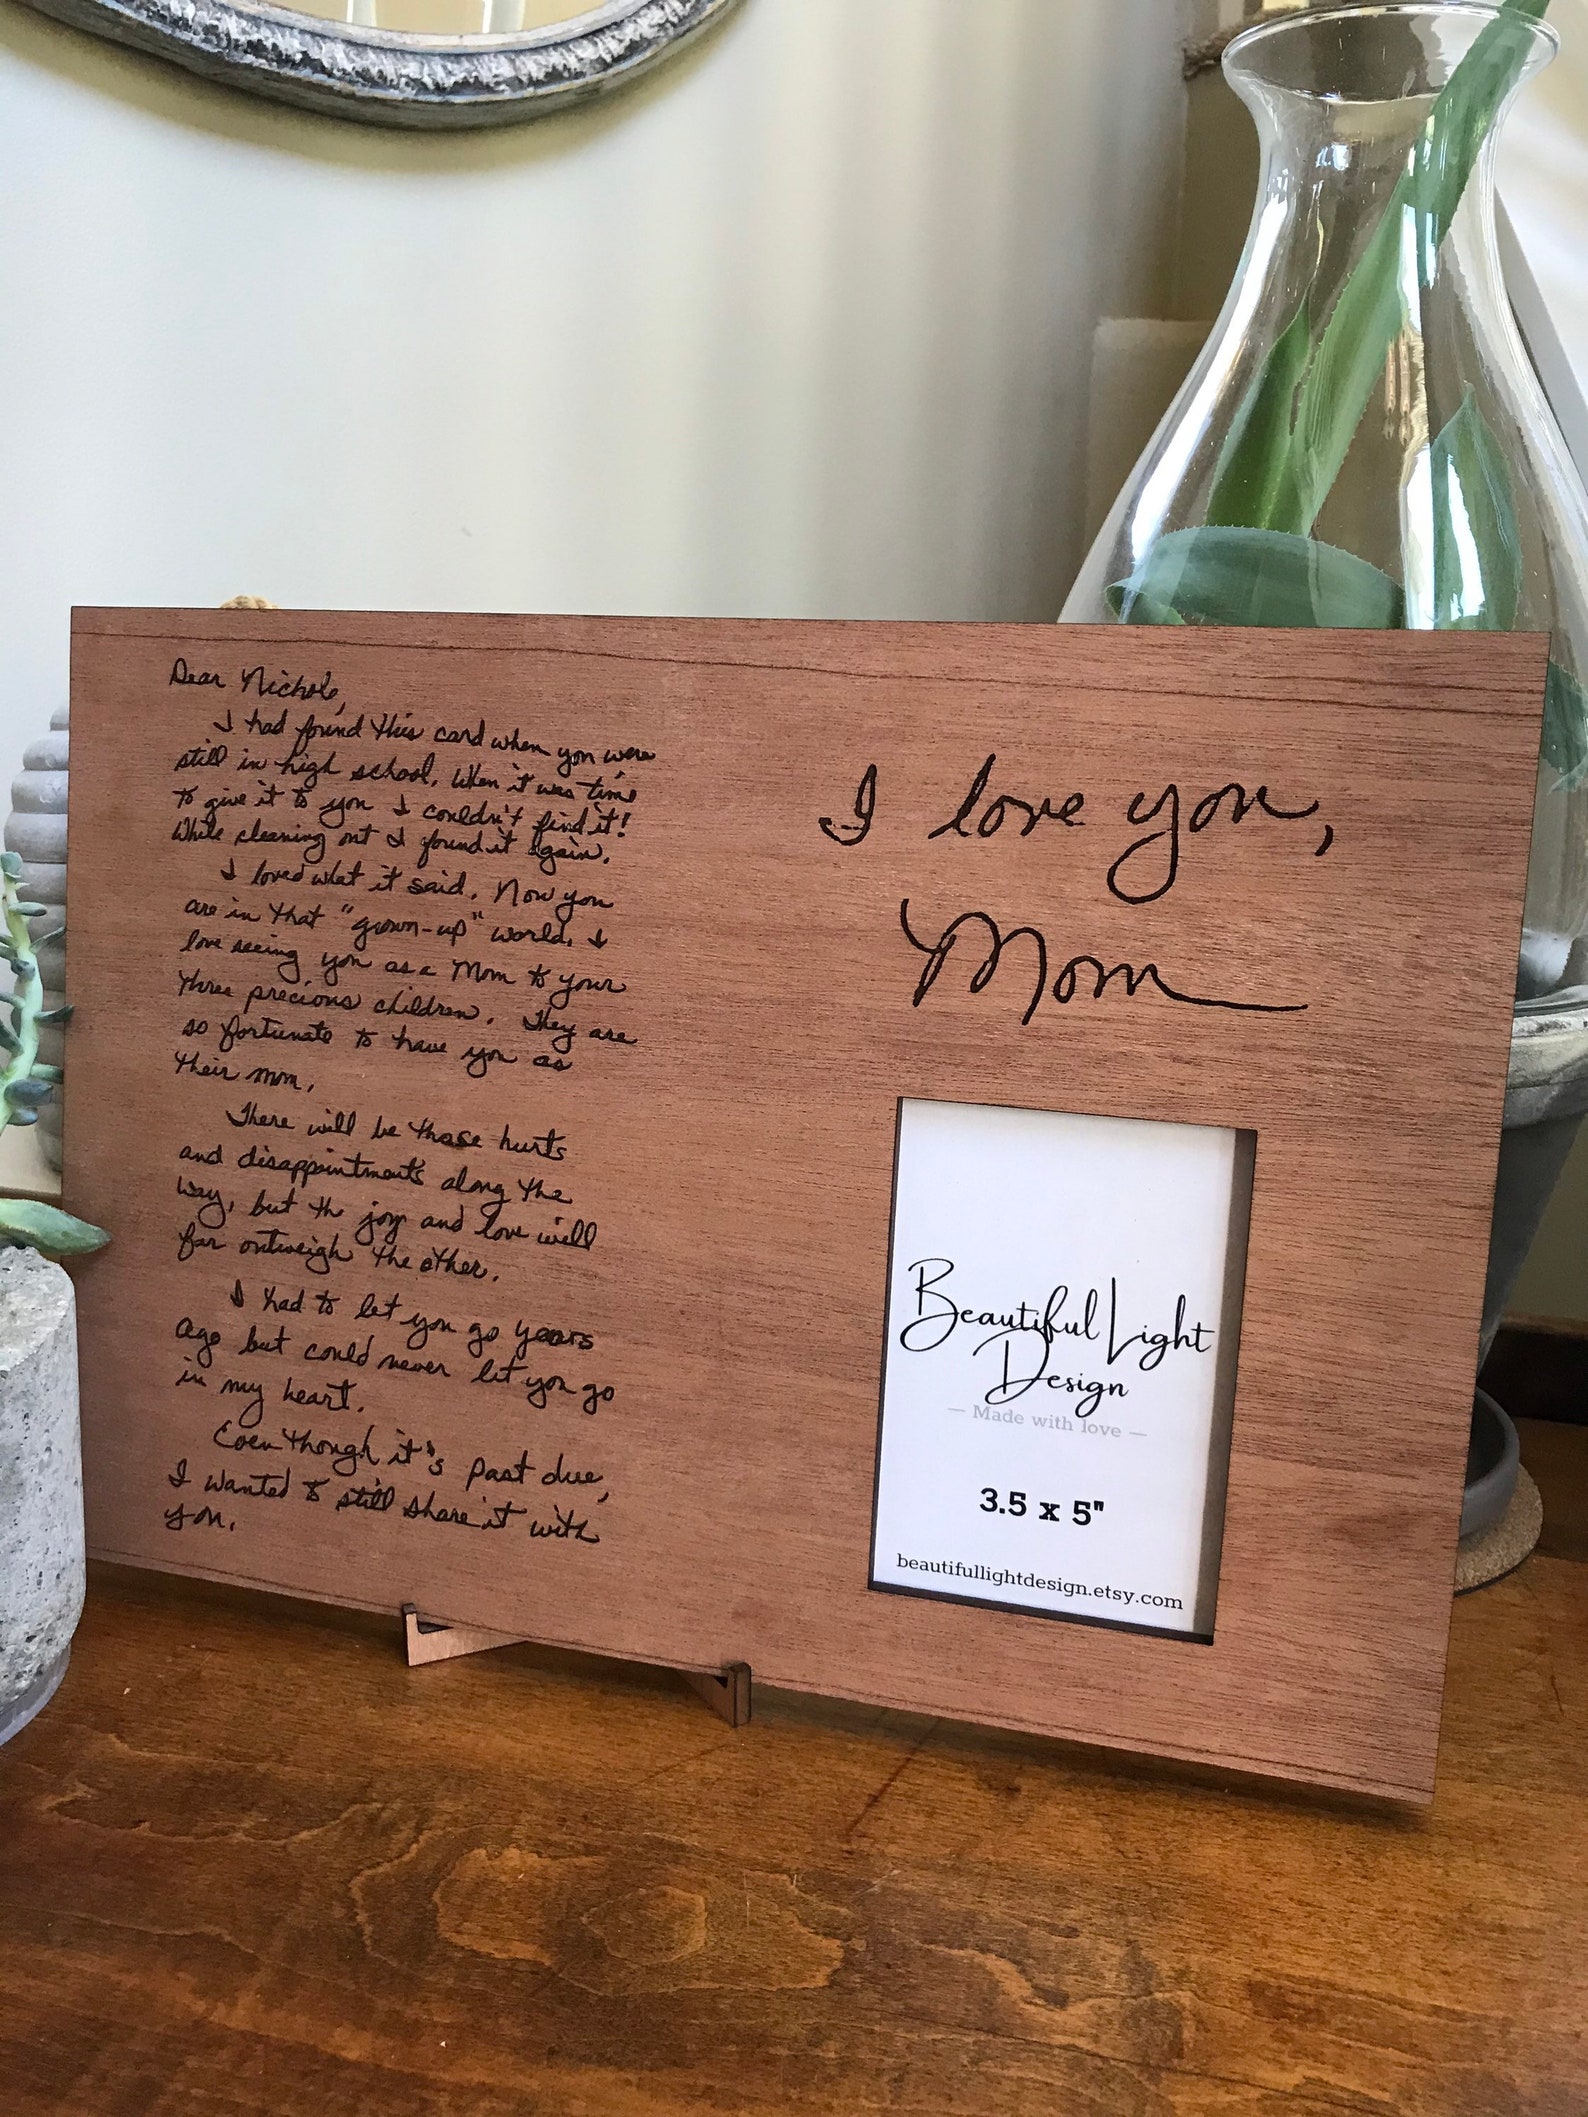 Dear Nichole,
I had found this card when you were
still in high school. When it was time
to give it to you I couldn't find it!
While cleaning out I found it again.
I loved what it said. Now you
are in that "grown-up" world. I
love seeing you as a Mom to your
three precious children. They are
so fortunate to have you as
their mom.
There will be those hurts
and disappointments along the
way, but the joy and love will
far outweigh the other.
I had to let you go years
ago but could never let you go
in my heart.
Even though it's past due,
I wanted to still share it with
you.
I love you,
Mom
Beautiful Light
Design
— Made with love —
3.5 x 5"
beautifullightdesign.etsy.com